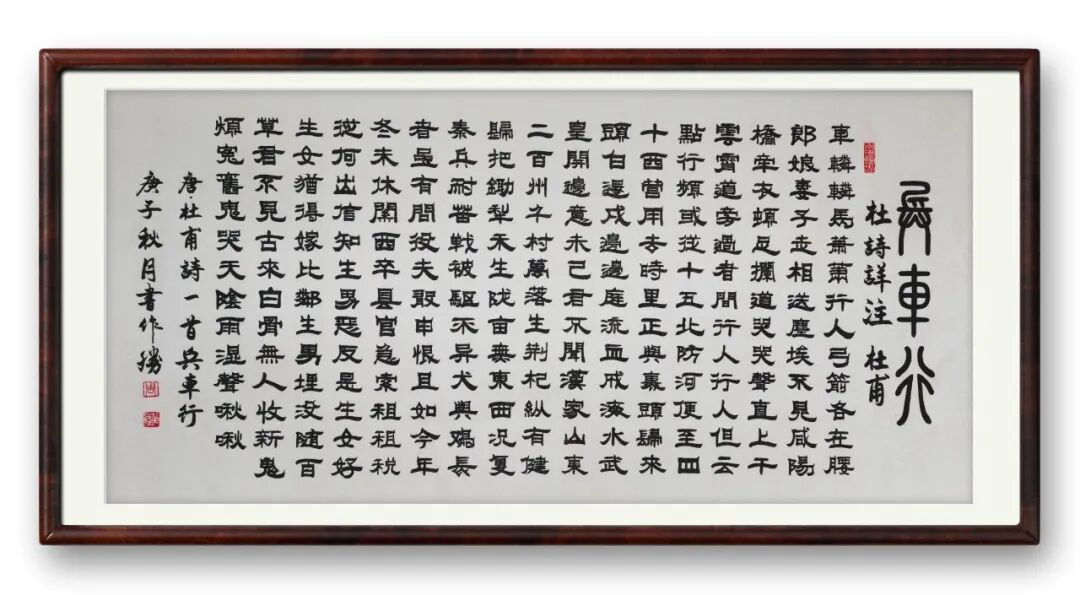 兵車行
杜詩詳注 杜甫
車轔轔馬蕭蕭行人弓箭各在腰
郎娘妻子走相送塵埃不見咸陽
橋牽衣頓足攔道哭哭聲直上干
雲霄道旁過者問行人行人但云
點行頻或從十五北防河便至四
十西營用去時里正與裹頭歸來
頭白還戍邊邊庭流血成海水武
皇開邊意未已君不聞漢家山東
二百州千村萬落生荊杞縱有健
婦把鋤犁禾生陇畝無東西況復
秦兵耐苦戰被驅不異犬與雞長
者雖有問役夫敢申恨且如今年
冬未休關西卒縣官急索租租稅
從何出信知生男惡反是生女好
生女猶得嫁比鄰生男埋没隨百
草君不見古來白骨無人收新鬼
煩冤舊鬼哭天陰雨濕聲啾啾
唐·杜甫詩一首兵車行
庚子秋月書作勝